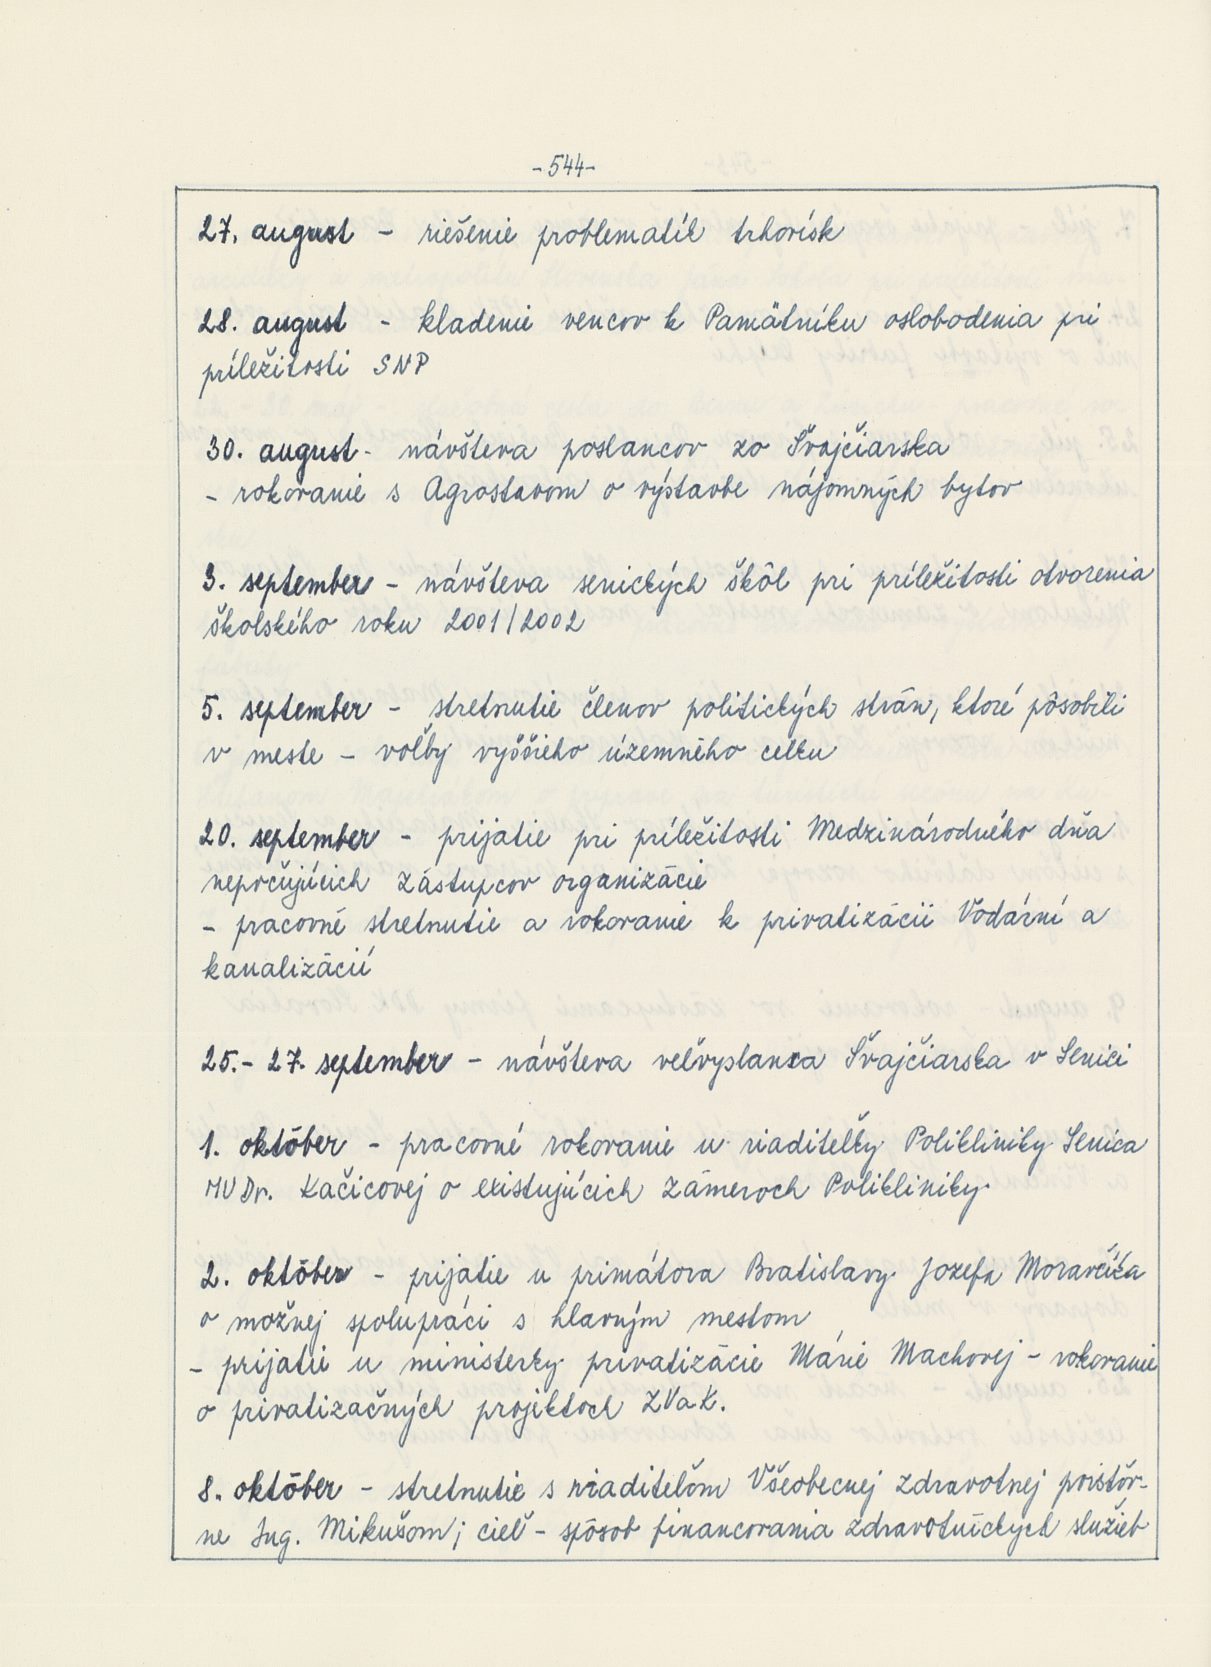 -544-
27. august - riešenie problematík trhovísk
28. august - kladenie vencov k Pamätníku oslobodenia pri
príležitosti SNP
30. august - návšteva poslancov zo Švajčiarska
- rokovanie s Agrostavom o výstavbe nájomných bytov
3. september - návšteva senických škôl pri príležitosti otvorenia
školského roku 2001/2002
5. september - stretnutie členov politických strán, ktoré pôsobili
v meste - voľby vyššieho územného celku
20. september - prijatie pri príležitosti Medzinárodného dňa
nepočujúcich zástupcov organizácie
- pracovné stretnutie a rokovanie k privatizácii Vodární a
kanalizácií
25.- 27. september - návšteva veľvyslanca Švajčiarska v Senici
1. október - pracovné rokovanie u riaditeľky Polikliniky Senica
MUDr. Kačicovej o existujúcich zámeroch Polikliniky.
2. október - prijatie u primátora Bratislavy Jozefa Moravčíka
o možnej spolupráci s hlavným mestom
- prijatie u ministerky privatizácie Márie Machovej - rokovanie
o privatizačných projektoch ZVaK.
8. október - stretnutie s riaditeľom Všeobecnej zdravotnej poisťov-
ne Ing. Mikušom; cieľ - spôsob financovania zdravotníckych služieb